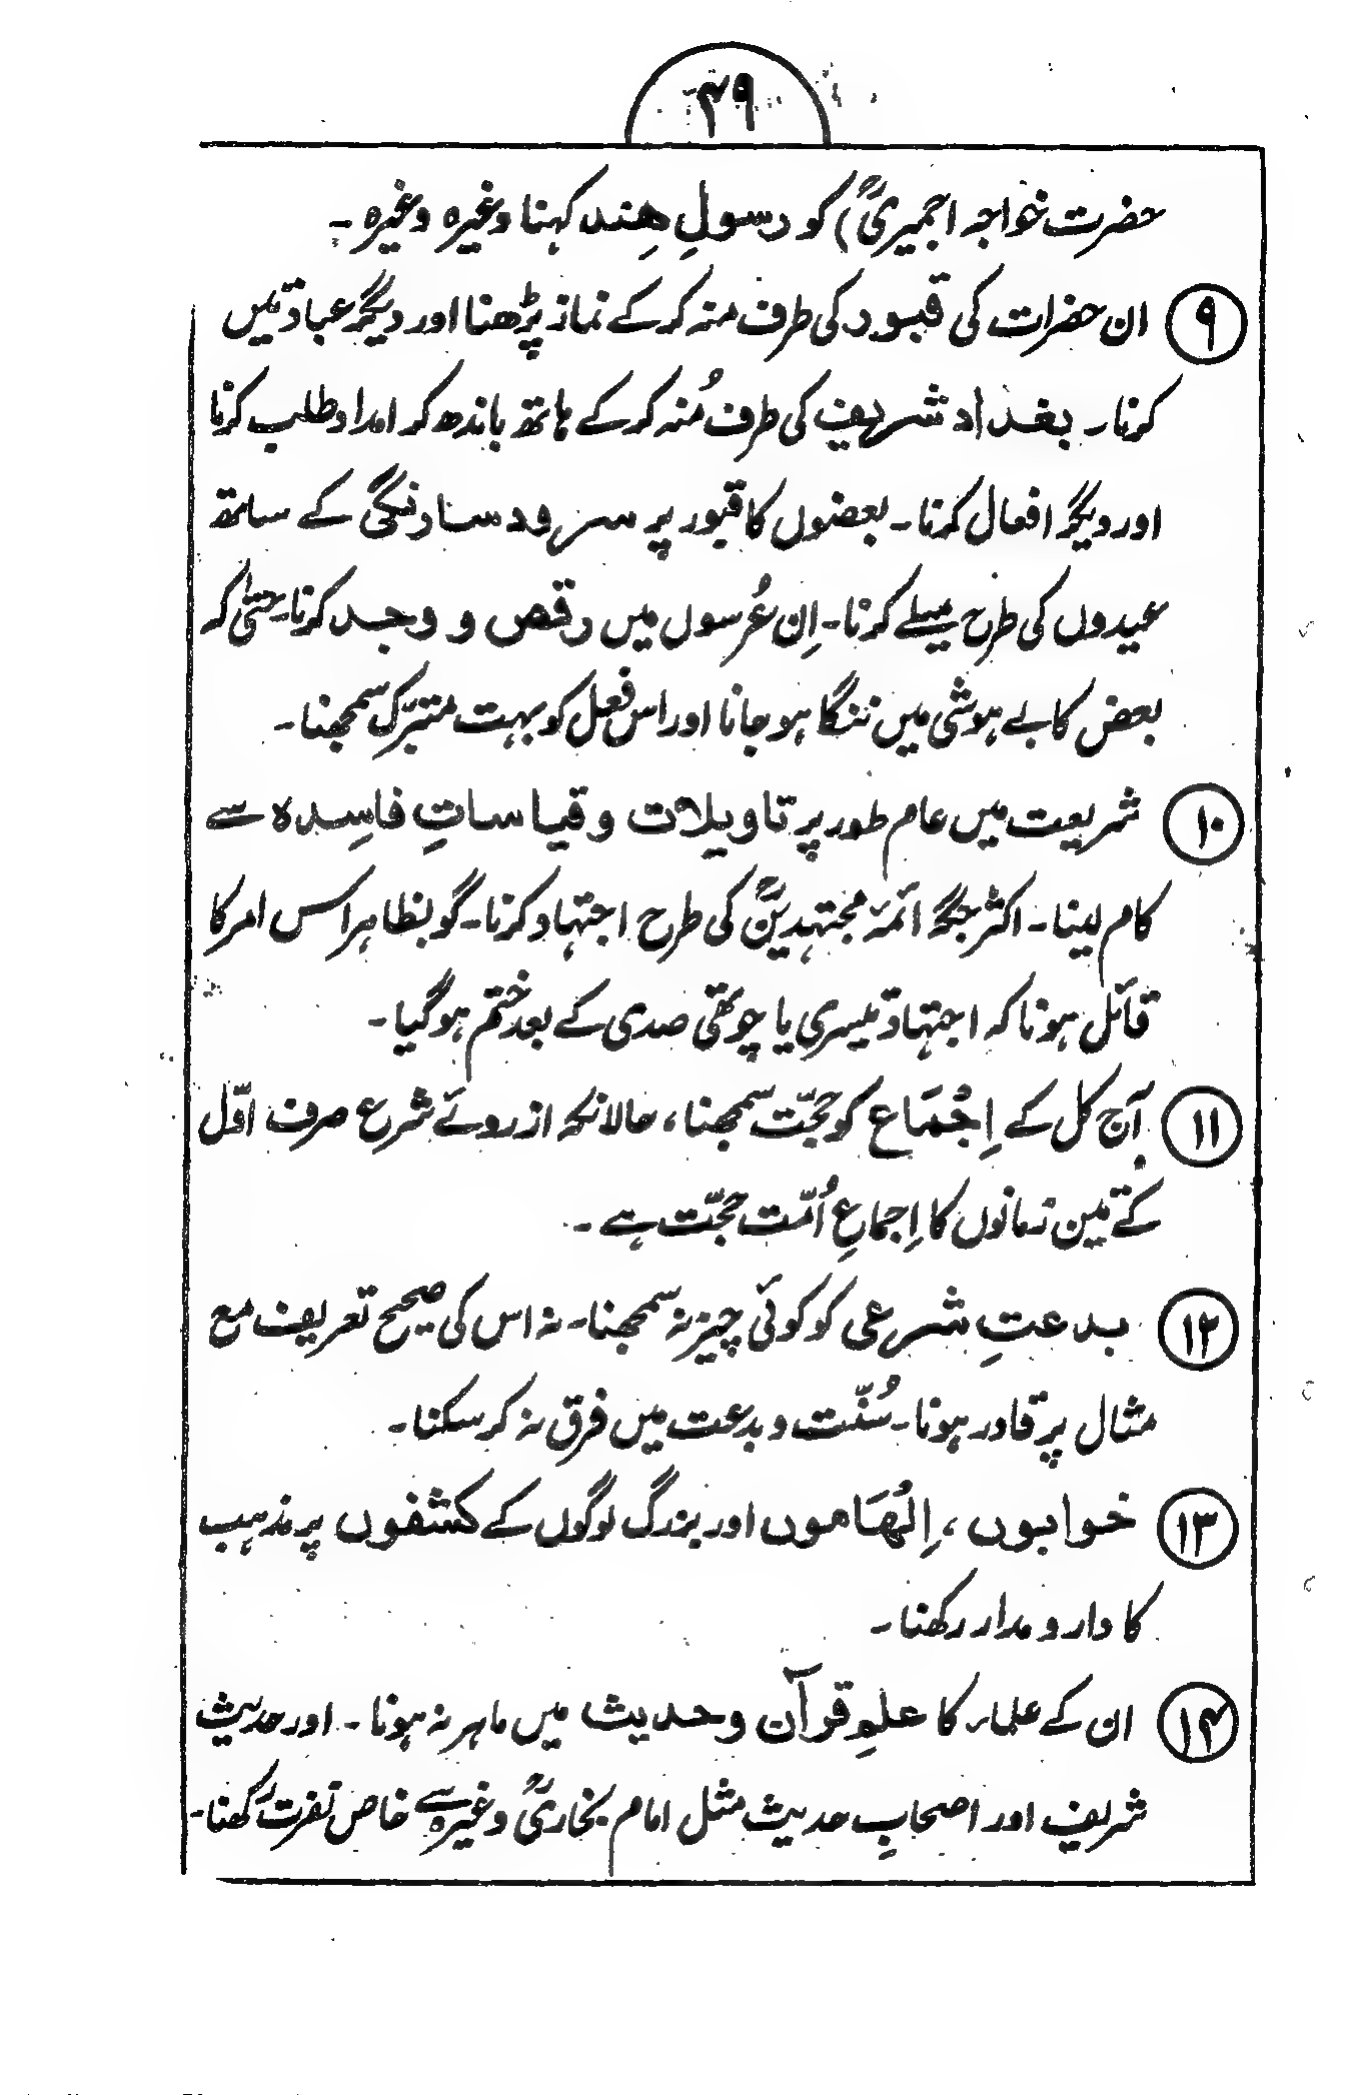 ۴۹
حضرت خواجہ اجمیریؒ) کو رسولِ ھِند کہنا وغیرہ وغیرہ ۔
۹ ان حضرات کی قبور کی طرف منہ کر کے نماز پڑھنا اور دیگر عبادتیں
کرنا ۔ بغداد شریف کی طرف مُنہ کر کے ہاتھ باندھ کر امداد طلب کرنا
اور دیگر افعال کرنا ۔ بعضوں کا قبور پر سرود سارنگی کے ساتھ
عیدوں کی طرح میلے کرنا ۔ اِن عُرسوں میں رقص و وجد کرنا ۔ حتیٰ کہ
بعض کا بے ہوشی میں ننگا ہو جانا اور اس فعل کو بہت متبرّک سمجھنا ۔
۱۰ شریعت میں عام طور پر تاویلات و قیاساتِ فاسِدہ سے
کام لینا ۔ اکثر جگہ ائمہ مجتہدینؒ کی طرح اجتہاد کرنا ۔ گو بظاہر اس امر کا
قائل ہونا کہ اجتہاد تیسری یا چوتھی صدی کے بعد ختم ہو گیا ۔
۱۱ آج کل کے اِجْمَاع کو حجّت سمجھنا ، حالانکہ از روئے شرع صرف اوّل
کے تین زمانوں کا اِجماعِ اُمّت حجّت ہے ۔
۱۲ بدعتِ شرعی کو کوئی چیز نہ سمجھنا ۔ نہ اس کی صحیح تعریف مع
مثال پر قادر ہونا ۔ سُنّت و بدعت میں فرق نہ کر سکنا ۔
۱۳ خوابوں ، اِلْھَاموں اور بزرگ لوگوں کے کشفوں پر مذہب
کا دار و مدار رکھنا ۔
۱۴ ان کے علماء کا علمِ قرآن و حدیث میں ماہر نہ ہونا ۔ اور حدیث
شریف اور اصحابِ حدیث مثل امام بخاریؒ وغیرہ سے خاص نفرت رکھنا ۔